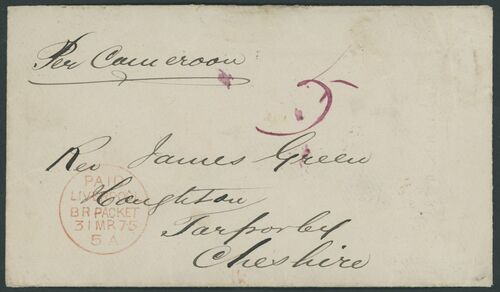 Per Cameroon
5
Rev James Green
Houghton
Tarporley
Cheshire
PAID
LIVERPOOL
BR. PACKET
31 MR 75
5 A